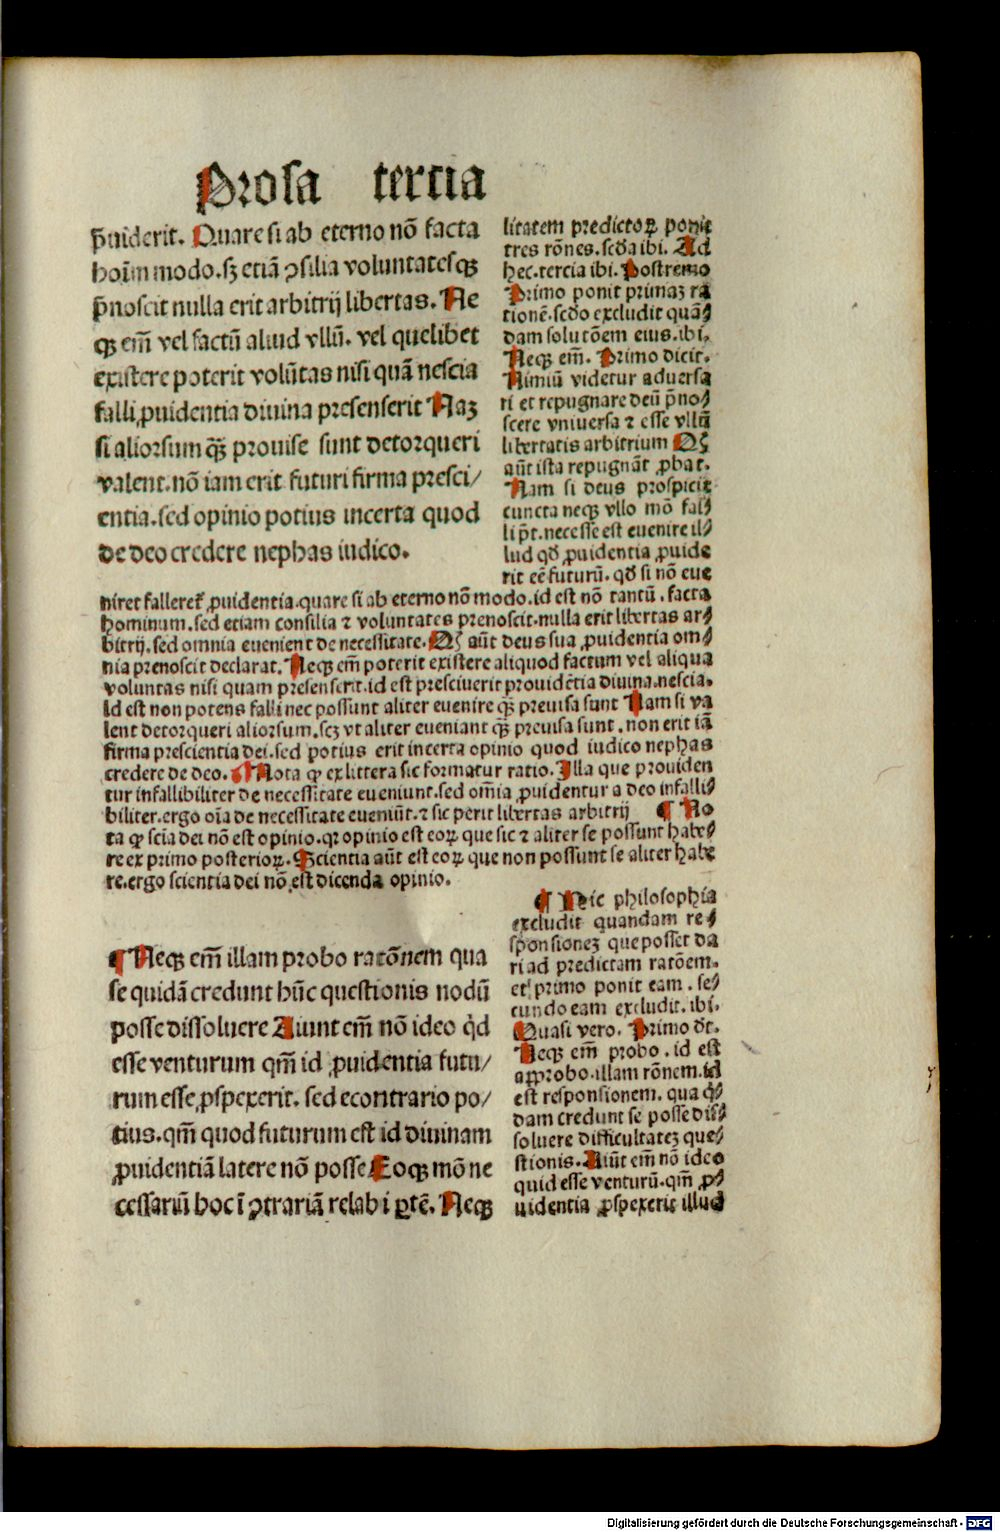 Prosa tercia
p̄uiderit. Quare si ab eterno nō facta
hoīm modo. sꝫ etiā ꝯsilia voluntatesqꝫ
p̄noscit nulla erit arbitrij libertas. Ne
qꝫ em̄ vel factū aliud vllū. vel quelibet
existere poterit volūtas nisi quā nescia
falli ꝓuidentia diuina presenserit Naꝫ
si aliorsum qꝫ̄ prouise sunt detorqueri
valent. nō iam erit futuri firma presci/
entia. sed opinio potius incerta quod
de deo credere nephas iudico.
litatem predictoꝝ ponit
tres rōnes. scd̄a ibi. Ad
hec. tercia ibi. Postremo
Primo ponit primaꝫ ra
tionē. scd̄o excludit quā/
dam solutōem eius. ibi.
Neqꝫ em̄. Primo dicit.
Nimiū videtur aduersa
ri et repugnare deū p̄no/
scere vniuersa ⁊ esse vllū
libertatis arbitrium Qꝫ
aūt ista repugnāt ꝓbat.
Nam si deus prospicit
cuncta neqꝫ vllo mō fal/
li pt̄. necesse est euenire il/
lud qd̄ ꝓuidentia ꝓuide
rit eē futurū. qd̄ si nō eue
niret fallereť ꝓuidentia. quare si ab eterno nō modo. id est nō tantū. facta
hominum. sed etiam consilia ⁊ voluntates prenoscit. nulla erit libertas ar/
bitrij. sed omnia eueniēt de necessitate. Qꝫ aūt deus sua ꝓuidentia om/
nia prenoscit declarat. Neqꝫ em̄ poterit existere aliquod factum vel aliqua
voluntas nisi quam presenserit. id est presciuerit prouidētia diuina. nescia.
id est non potens falli nec possunt aliter euenire qꝫ̄ preuisa sunt Nam si va
lent detorqueri aliorsum. scꝫ vt aliter eueniant qꝫ̄ preuisa sunt. non erit iā
firma prescientia dei. sed potius erit incerta opinio quod iudico nephas
credere de deo. ¶ Nota ꝙ ex littera sic formatur ratio. Illa que prouiden
tur infallibiliter de necessitate eueniunt. sed omīa ꝓuidentur a deo infalli/
biliter. ergo oīa de necessitate eueniūt. ⁊ sic perit libertas arbitrij ¶ No
ta ꝙ scīa dei nō est opinio. qr opinio est eoꝝ que sic ⁊ aliter se possunt habe/
re ex primo posterioꝝ. Scientia aūt est eoꝝ que non possunt se aliter habe
re. ergo scientia dei nō est dicenda opinio.
¶ Neqꝫ em̄ illam probo ratōnem qua
se quidā credunt hūc questionis nodū
posse dissoluere Aiunt em̄ nō ideo qd̄
esse venturum qm̄ id ꝓuidentia futu/
rum esse ꝓspexerit. sed econtrario po/
tius. qm̄ quod futurum est id diuinam
ꝓuidentiā latere nō posse Eoqꝫ mō ne
cessariū hoc ī ꝯtrariā relabi ꝑtē. Neqꝫ
¶ Hic philosophia
excludit quandam re/
sponsioneꝫ que posset da
ri ad predictam ratōem.
et primo ponit eam. se/
cundo eam excludit. ibi.
Quasi vero. Primo dt̄.
Neqꝫ em̄ probo. id est
approbo. illam rōnem. id
est responsionem. qua q̄/
dam credunt se posse dis/
soluere difficultateꝫ que/
stionis. Aiūt em̄ nō ideo
quid esse venturū. qm̄ ꝓ/
uidentia ꝓspexerit illud
Digitalisierung gefördert durch die Deutsche Forschungsgemeinschaft - DFG